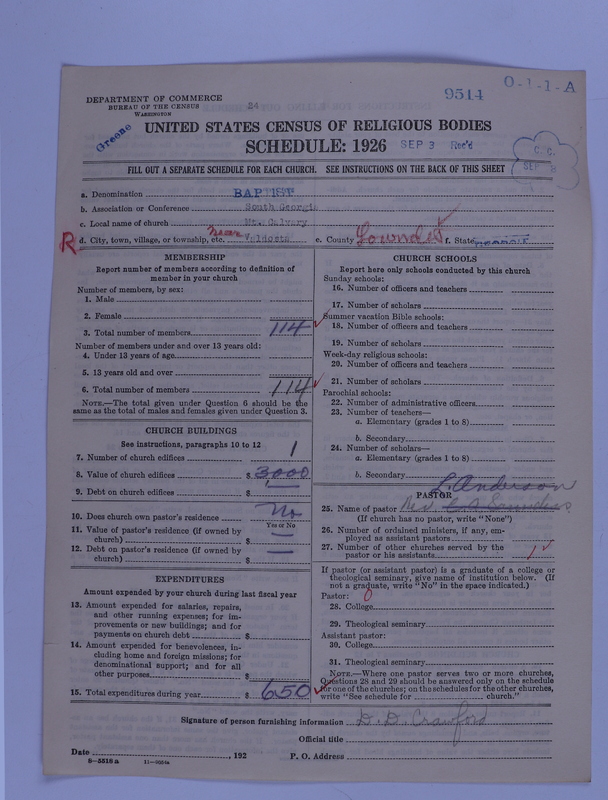 DEPARTMENT OF COMMERCE
BUREAU OF THE CENSUS
WASHINGTON
24
9514
O-1-1-A
Greene
UNITED STATES CENSUS OF RELIGIOUS BODIES
SCHEDULE: 1926
SEP 3 Rec'd
C. C.
SEP
FILL OUT A SEPARATE SCHEDULE FOR EACH CHURCH. SEE INSTRUCTIONS ON THE BACK OF THIS SHEET
a. Denomination BAPTIST
b. Association or Conference South Georgia
c. Local name of church Mt. Calvary
R d. City, town, village, or township, etc. near Valdosta e. County Lowndes f. State GEORGIA
MEMBERSHIP
Report number of members according to definition of
member in your church
Number of members, by sex:
1. Male
2. Female
3. Total number of members 114
Number of members under and over 13 years old:
4. Under 13 years of age
5. 13 years old and over
6. Total number of members 114
NOTE.—The total given under Question 6 should be the
same as the total of males and females given under Question 3.
CHURCH BUILDINGS
See instructions, paragraphs 10 to 12
7. Number of church edifices 1
8. Value of church edifices $ 3,000
9. Debt on church edifices $
10. Does church own pastor's residence No
Yes or No
11. Value of pastor's residence (if owned by
church) $ —
12. Debt on pastor's residence (if owned by
church) $ —
EXPENDITURES
Amount expended by your church during last fiscal year
13. Amount expended for salaries, repairs,
and other running expenses; for im-
provements or new buildings; and for
payments on church debt $
14. Amount expended for benevolences, in-
cluding home and foreign missions; for
denominational support; and for all
other purposes $
15. Total expenditures during year $ 650
CHURCH SCHOOLS
Report here only schools conducted by this church
Sunday schools:
16. Number of officers and teachers
17. Number of scholars
Summer vacation Bible schools:
18. Number of officers and teachers
19. Number of scholars
Week-day religious schools:
20. Number of officers and teachers
21. Number of scholars
Parochial schools:
22. Number of administrative officers
23. Number of teachers—
a. Elementary (grades 1 to 8)
b. Secondary
24. Number of scholars—
a. Elementary (grades 1 to 8)
b. Secondary
L. Anderson
PASTOR
25. Name of pastor Rev.
(If church has no pastor, write "None")
26. Number of ordained ministers, if any, em-
ployed as assistant pastors
27. Number of other churches served by the
pastor or his assistants 1
If pastor (or assistant pastor) is a graduate of a college or
theological seminary, give name of institution below. (If
not a graduate, write "No" in the space indicated.)
Pastor: 0
28. College
29. Theological seminary
Assistant pastor:
30. College
31. Theological seminary
NOTE.—Where one pastor serves two or more churches,
Questions 28 and 29 should be answered only on the schedule
for one of the churches; on the schedules for the other churches,
write "See schedule for church."
Signature of person furnishing information D. D. Crawford
Official title
Date , 192 P. O. Address
8—5518 a